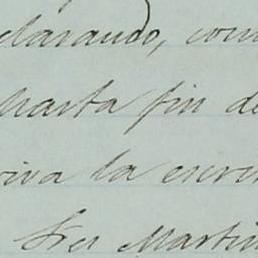 clarando, com
hasta fin de
riva la escri
Sres Martin